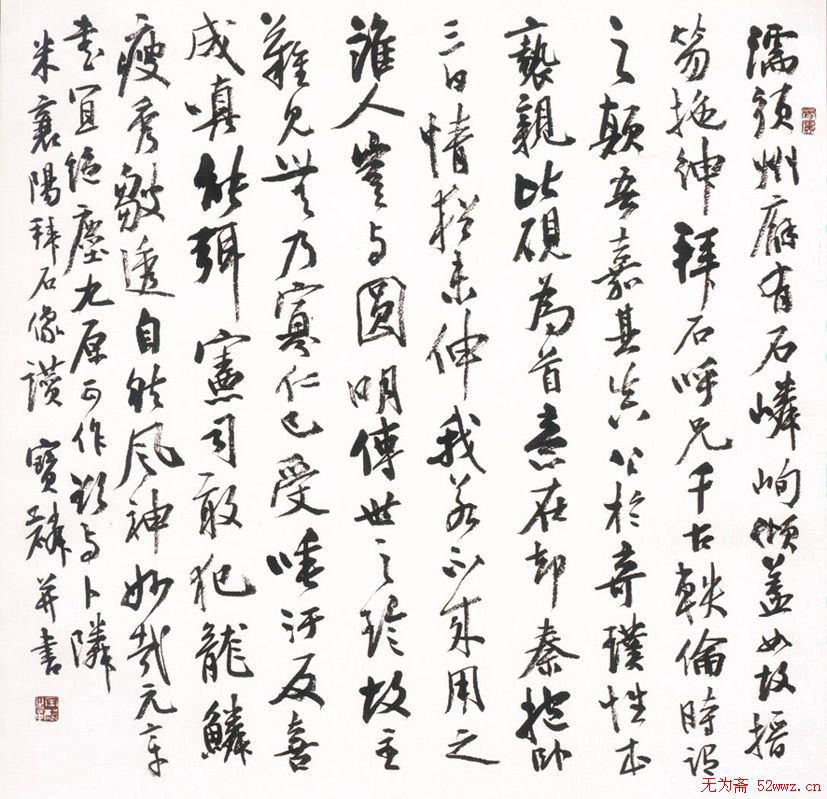 濡須州廨有石嶙峋傾蓋如故搢
笏拖紳拜石呼兄千古軼倫時謂
之顛吾嘉其真公於奇璞性本
褻親比硯為首意在却秦抱卧
三日情猶未伸我若不來用之
誰人豈与圓明傳世之珍故主
難見乃寡仁已受唾汙反喜
成嗔能弭憲司敢犯龍鱗
瘦秀皺透自然風神妙哉元章
宜絕塵九原可作与卜隣
米襄陽拜石像讚 寶麟并書
无为斋 52wwz.cn